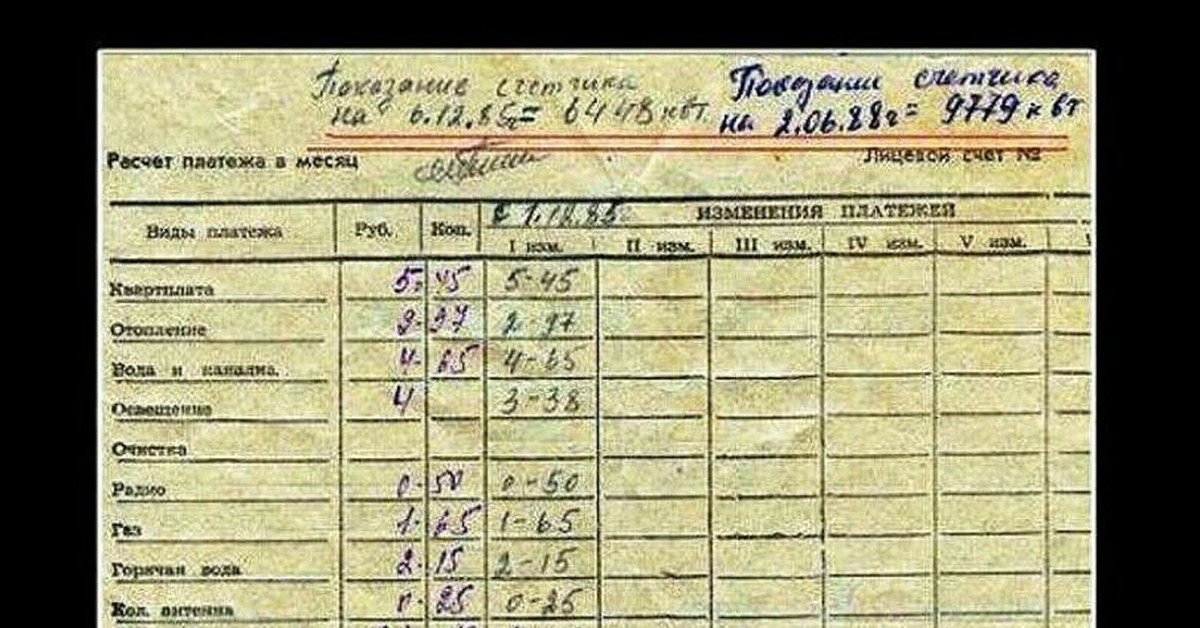 Показание счетчика Показании счетчика
на 6.12.85г= 6448 квт. на 2.06.88г= 9779 квт
Расчет платежа в месяц Лицевой счет №
Виды платежа Руб. Коп. с 1.12.85г ИЗМЕНЕНИЯ ПЛАТЕЖЕЙ
I изм. II изм. III изм. IV изм. V изм.
Квартплата 5- 45 5-45
Отопление 97 2-97
Вода и канализ. 4- 65 4-65
Освещение 4 3-38
Очистка
Радио 0- 50 0-50
Газ 1- 65 1-65
Горячая вода 2- 15 2-15
Кол. антенна 0- 25 0-25